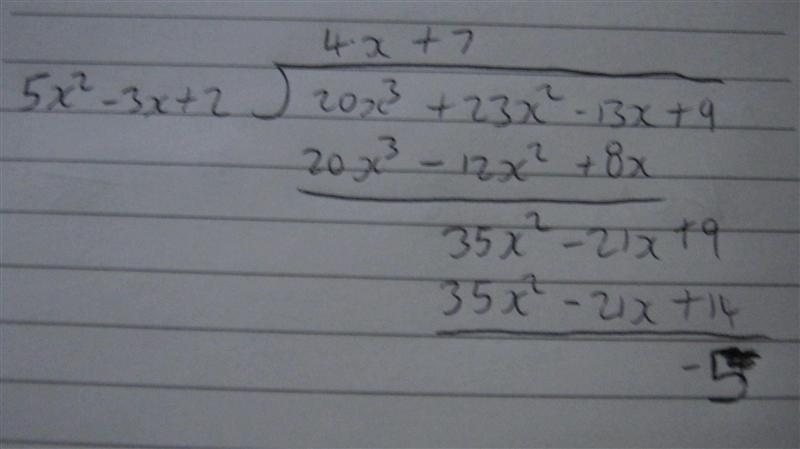 4x + 7
5x² - 3x + 2 ) 20x³ + 23x² - 13x + 9
20x³ - 12x² + 8x
35x² - 21x + 9
35x² - 21x + 14
-5